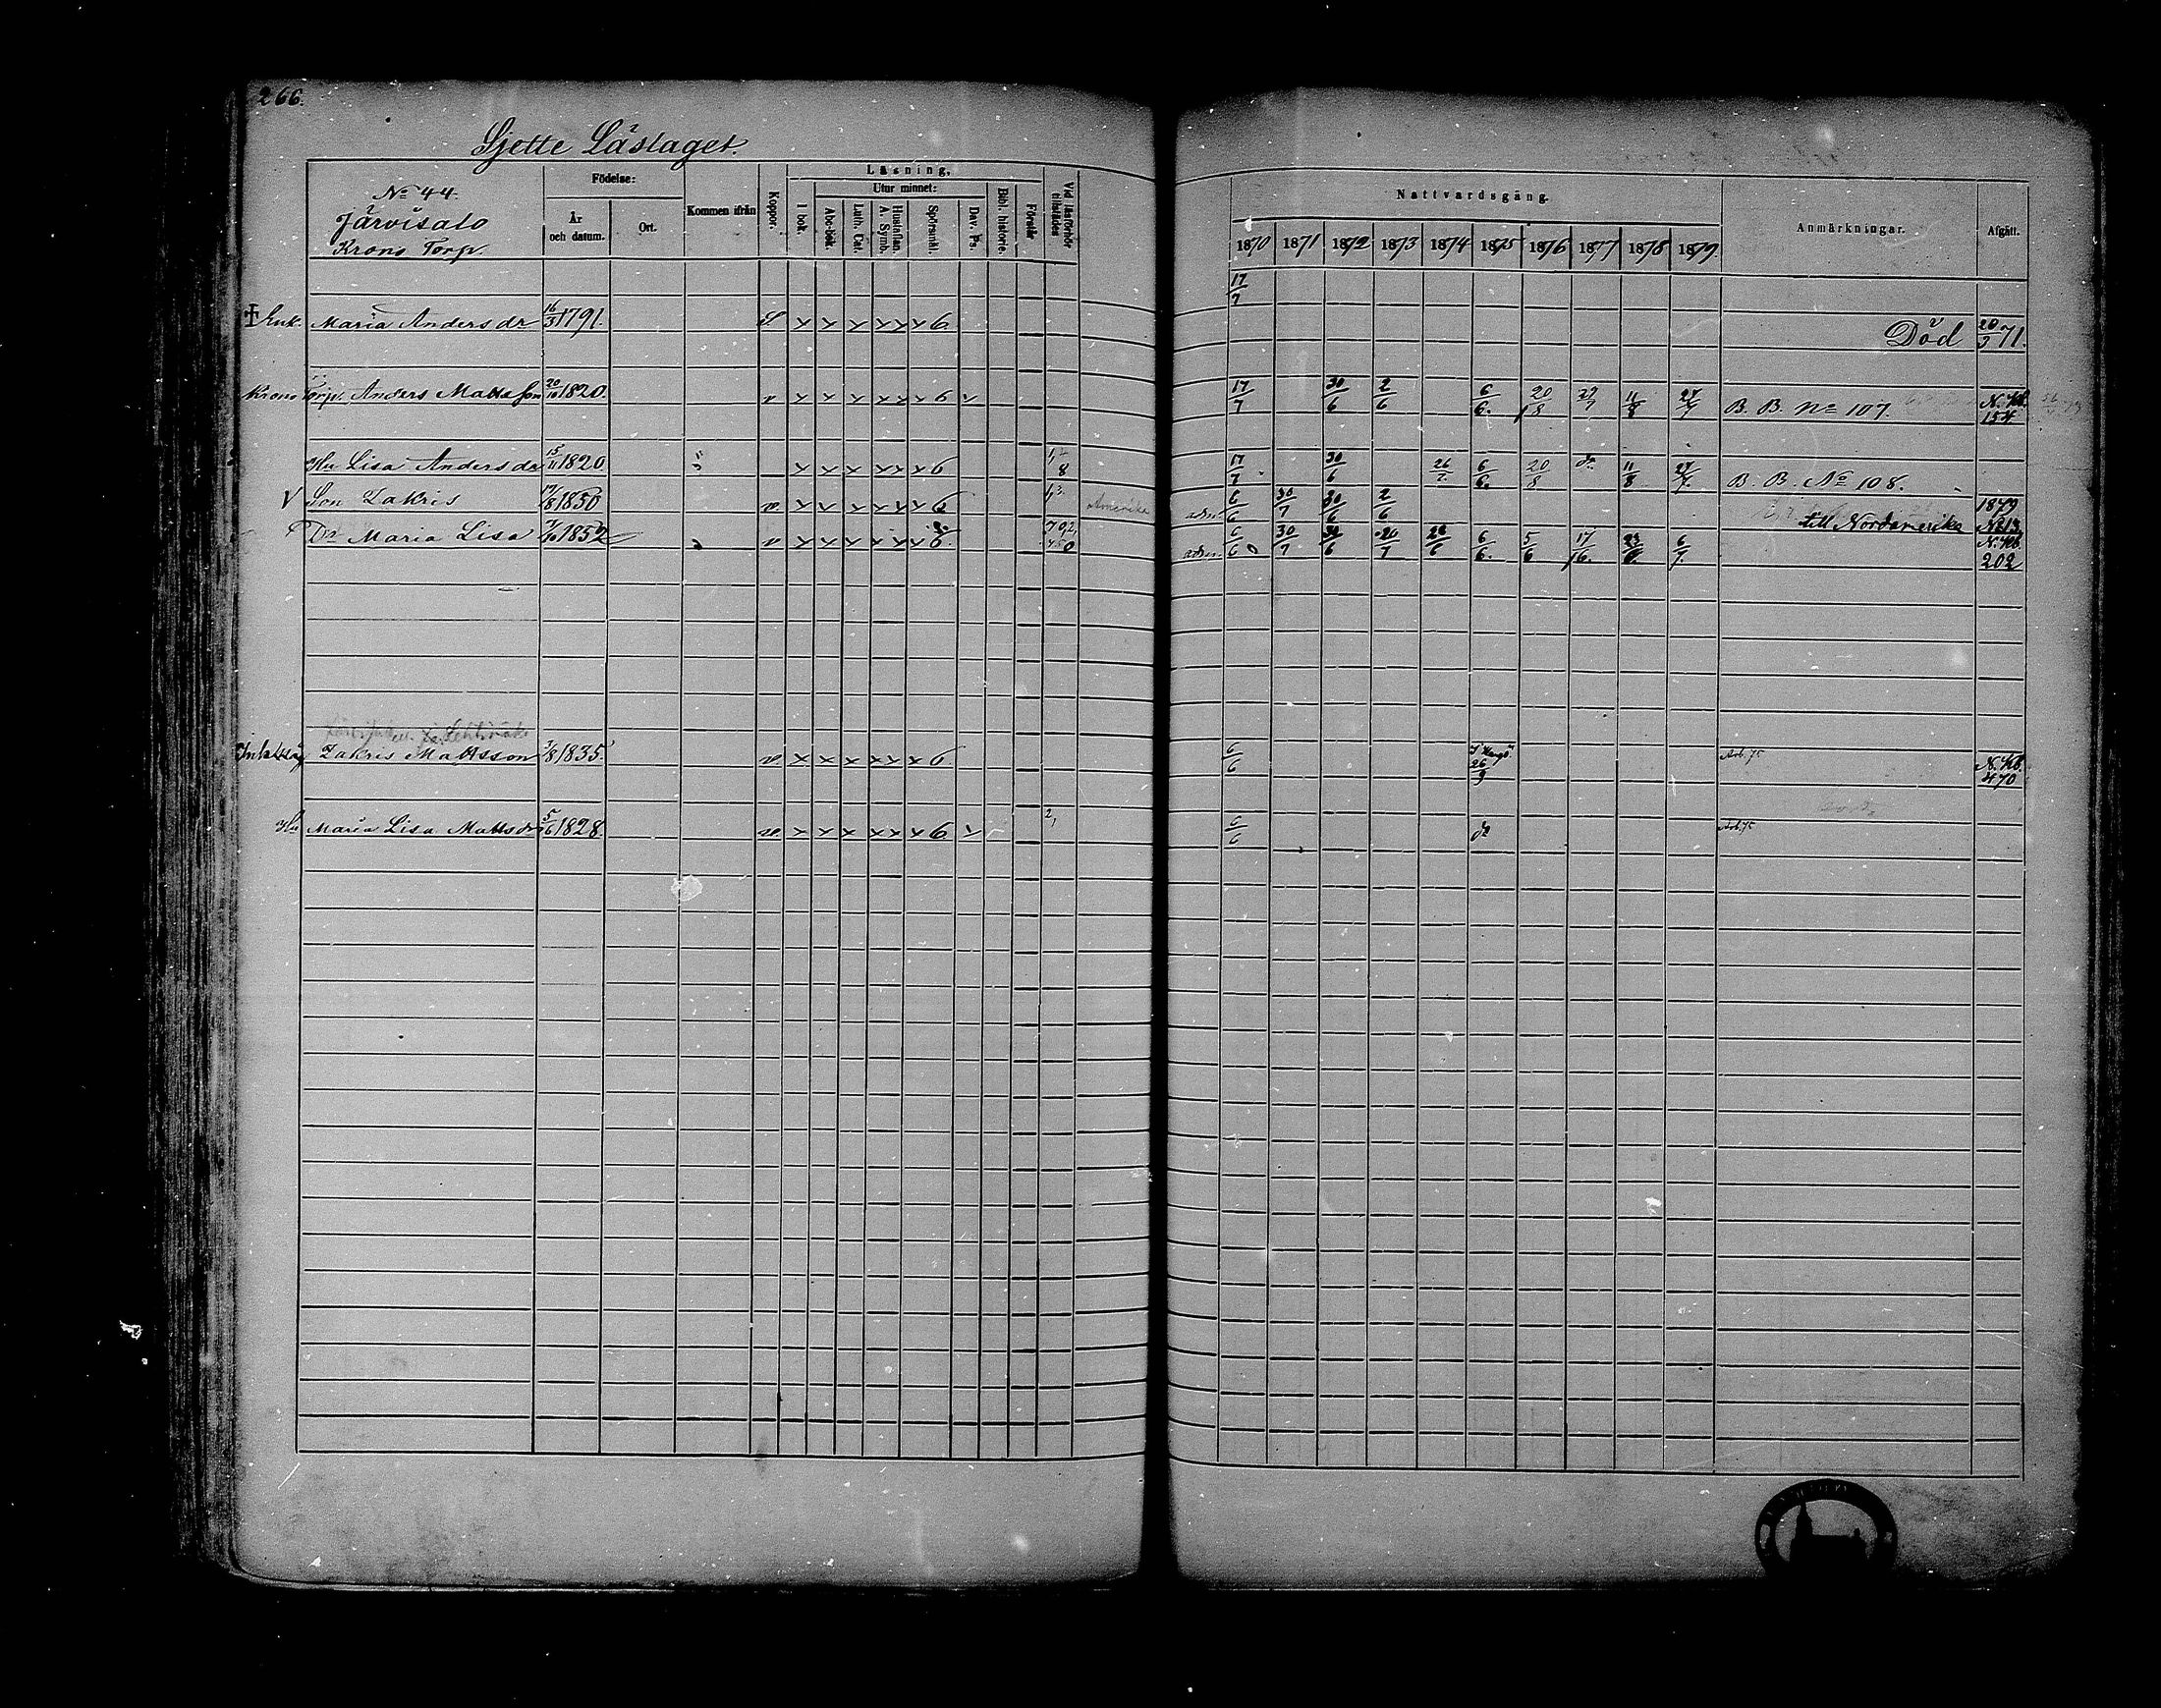 266.
Sjette Läslaget.
No 44.
Järvisalo
Krono Torp.
Födelse:
År och datum.
Ort.
Kommen ifrån
Koppor.
Läsning,
Utur minnet:
I bok.
Abc-bok.
Luth. Cat.
Hustaflan. A. Symb.
Spörsmål.
Dav. Ps.
Bibl. historie.
Förstår
Vid läsförhör tillstädes
Nattvardsgång.
1870 1871 1872 1873 1874 1875 1876 1877 1878 1879
Anmärkningar.
Afgått.
17/7
Enk. Maria Anders dr 16/3 1791. S. x x x x x x 6 Död 20/3 71.
Krono Torp. Anders Matts son 20/10 1820. v x x x x x x 6 v 17/7 30/6 2/6 6/6. 20/8 29/7 11/8 27/7 B. B. No 107. N. Kb. 154.
Hu Lisa Anders dr 15/11 1820 x x x x x x 6 8 17/7 30/6 26/7. 6/6. 20/8 do 11/8 27/7. B. B. No 108.
V Son Zakris 17/8 1850 v. x x x x x x 6 Amerika adm. 6/6 30/7 30/6 2/6 till Nordamerika 1879 N. 13
Dr Maria Lisa 7/10 1852 v x x x x x x 6. adm. 6/6 30/7 30/6 20/7 28/6 6/6. 5/6 17/6. 23/6. 6/7. N. Kb. 202
Zakris Mattsson 7/8 1835. v. x x x x x x 6 6/6 26/9 Arb. 75 N. Kb. 470
Hu Maria Lisa Matts dr 5/6 1828. v. x x x x x x 6 v 2, 6/6 do Arb. 75